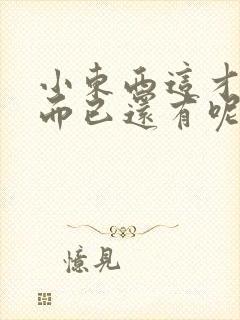 小東西這才
而已還有呢
憶見